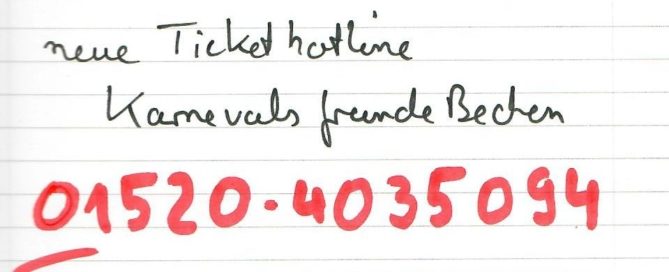 neue Tickethotline
Karnevalsfreunde Becken
01520-4035094